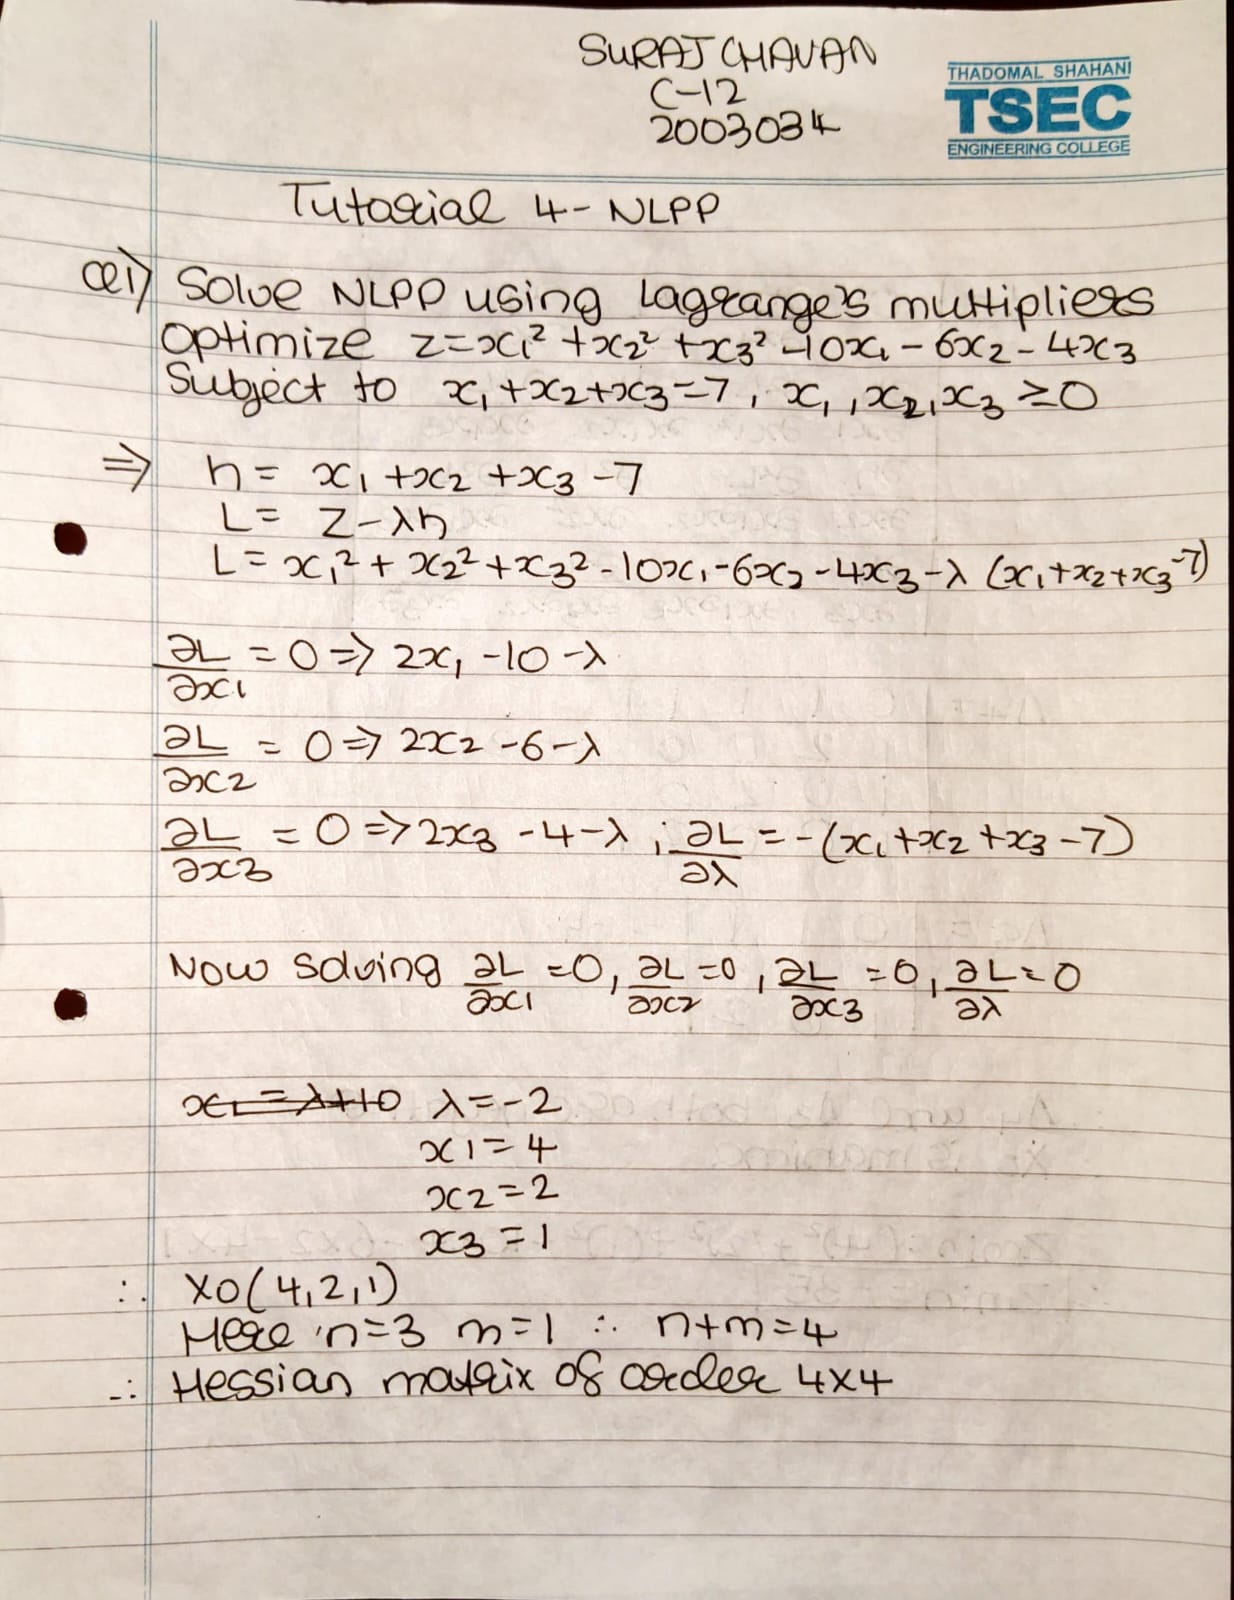 SURAJ CHAVAN
C-12
2003034
THADOMAL SHAHANI
TSEC
ENGINEERING COLLEGE
Tutorial 4 - NLPP
Q1) Solve NLPP using Lagrange's multipliers
Optimize z = x₁² + x₂² + x₃² - 10x₁ - 6x₂ - 4x₃
Subject to x₁ + x₂ + x₃ = 7, x₁, x₂, x₃ ≥ 0
⇒ h = x₁ + x₂ + x₃ - 7
L = Z - λh
L = x₁² + x₂² + x₃² - 10x₁ - 6x₂ - 4x₃ - λ (x₁ + x₂ + x₃ - 7)
∂L/∂x1 = 0 ⇒ 2x₁ - 10 - λ
∂L/∂x2 = 0 ⇒ 2x2 - 6 - λ
∂L/∂x3 = 0 ⇒ 2x3 - 4 - λ ; ∂L/∂λ = -(x₁ + x2 + x3 - 7)
Now solving ∂L/∂x1 = 0, ∂L/∂x2 = 0, ∂L/∂x3 = 0, ∂L/∂λ = 0
λ = -2
x1 = 4
x2 = 2
x3 = 1
∴ X0(4,2,1)
Here n=3 m=1 ∴ n+m=4
∴ Hessian matrix of order 4x4